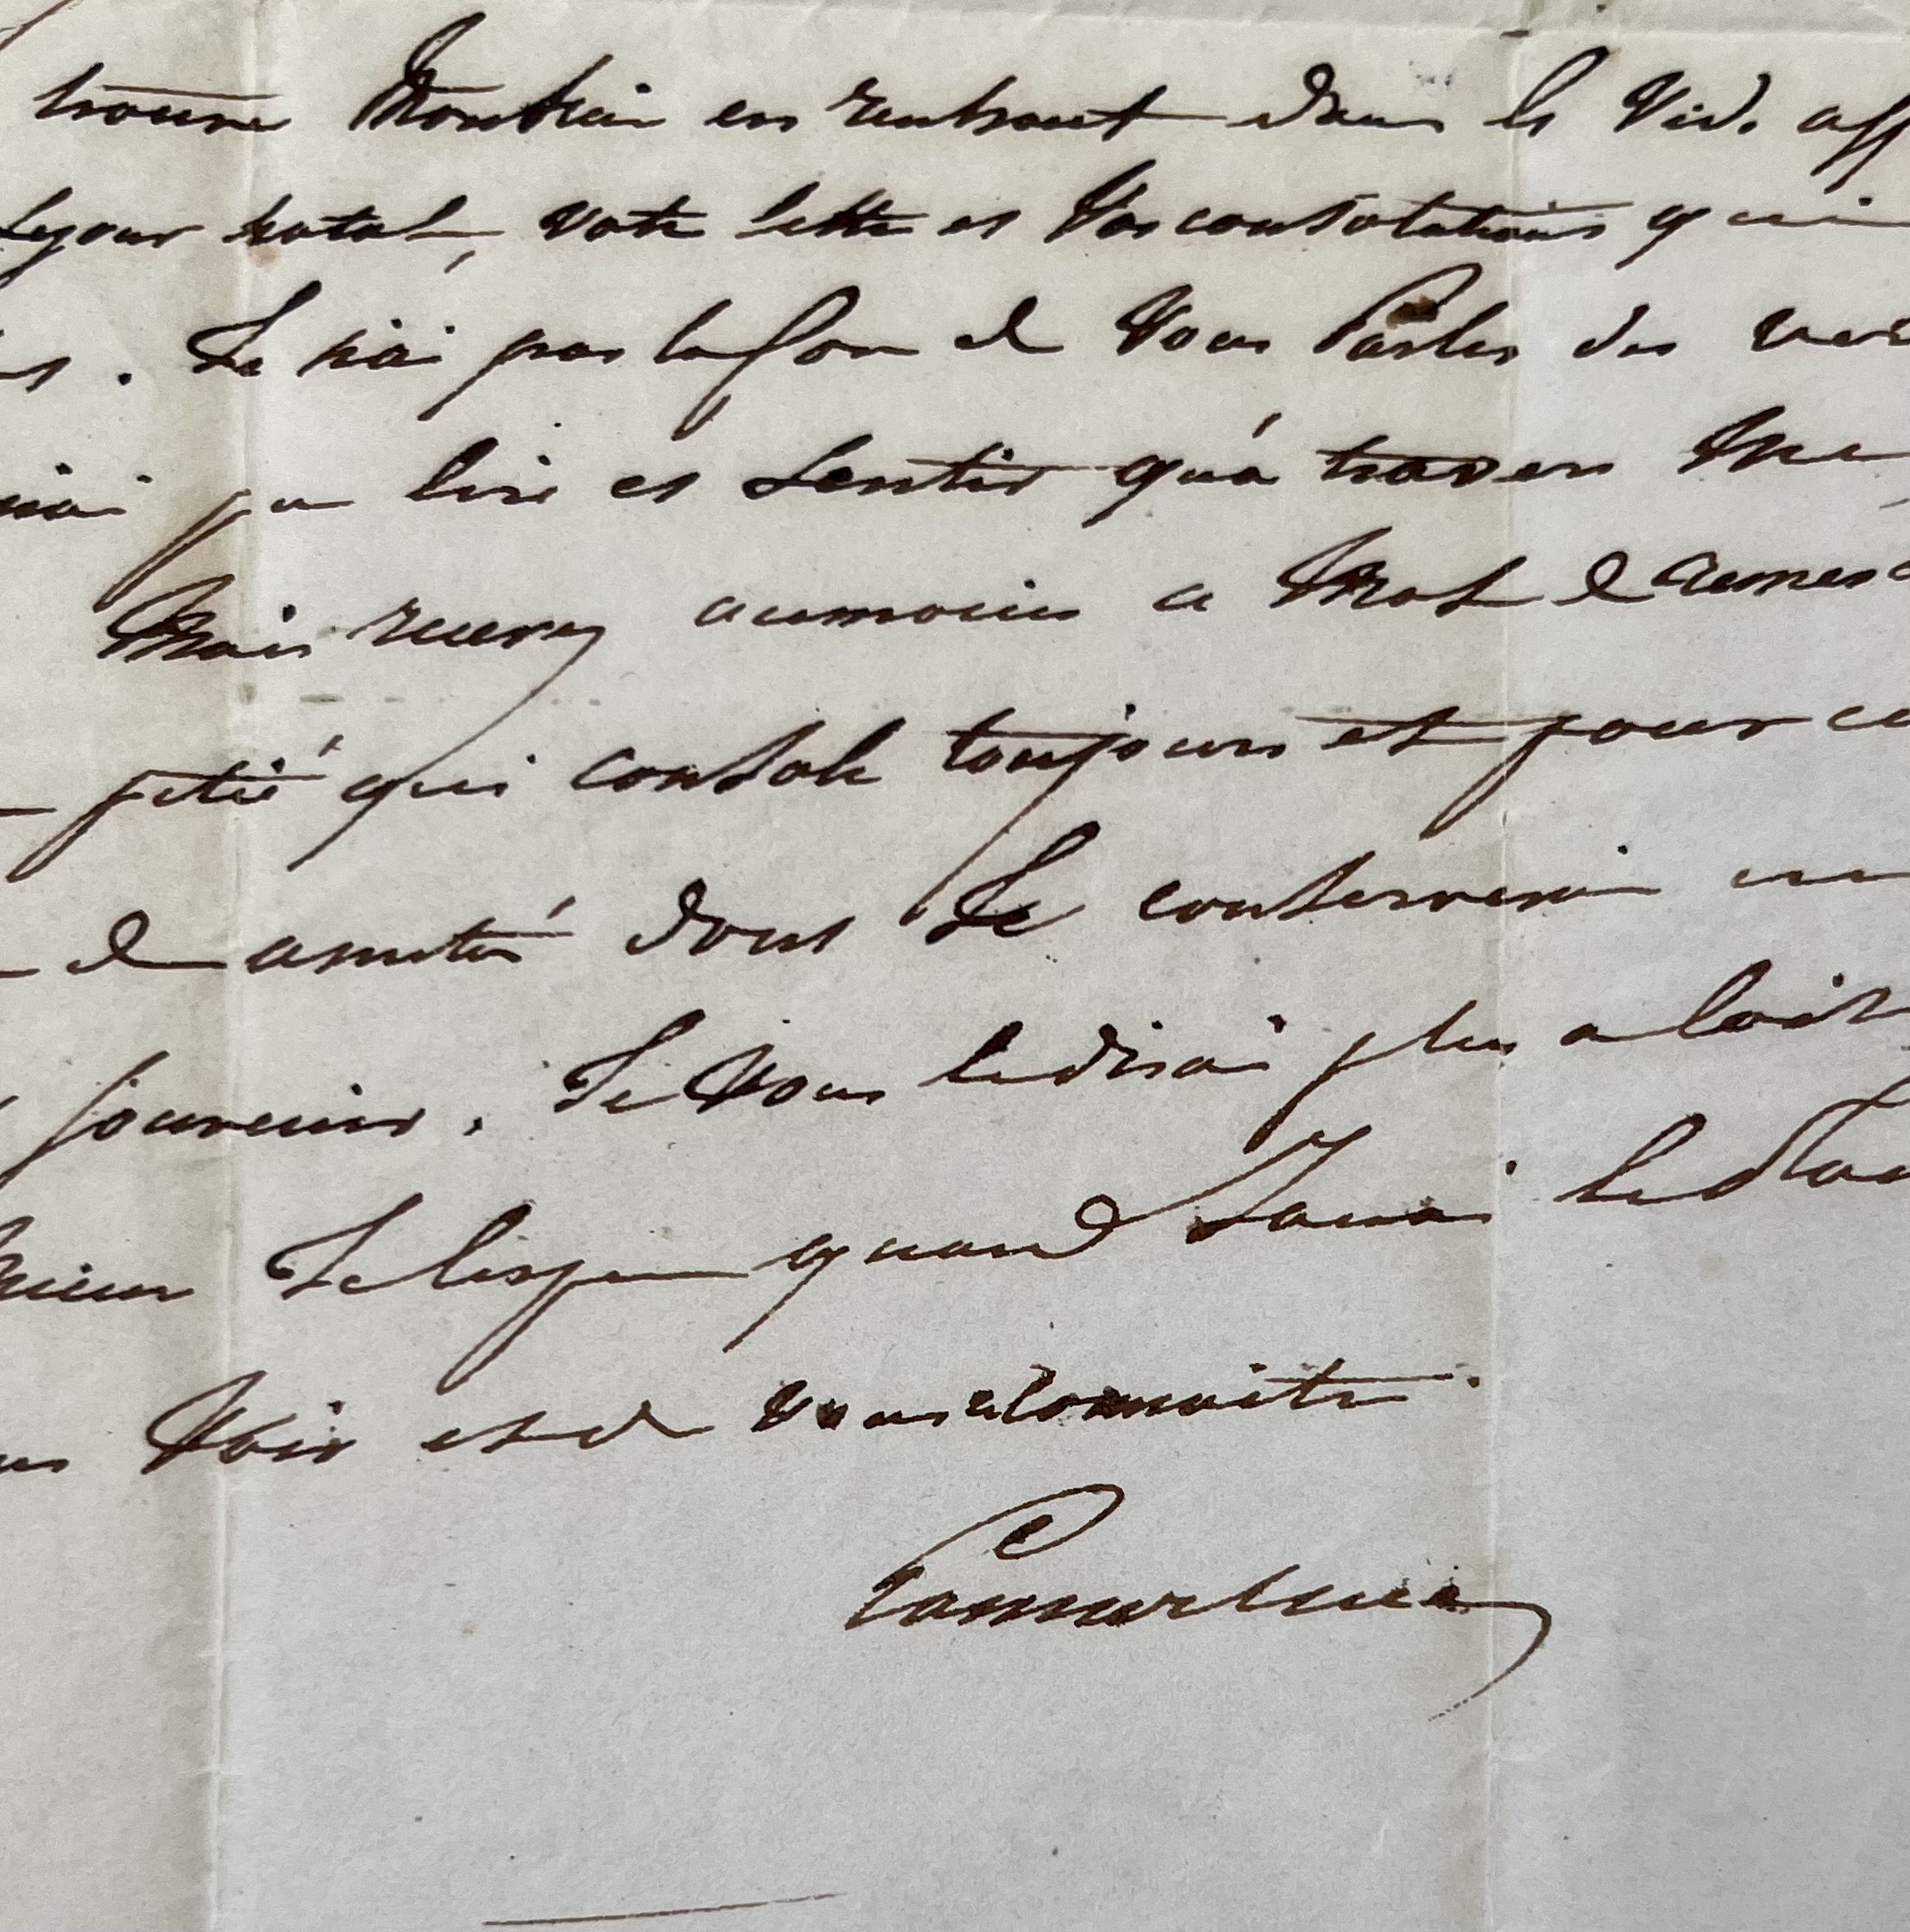 trouve Monsieur en rentrant dans le vide aff
sejour natal, votre lettre et vos consolations qui
. Je n'ai pas la force de vous parler des vers
n'ai pu lire et sentir qu'à travers me
Mais recevez aumoins ce mot de remerc
pitié qui console toujours et pour ce
de amitié dont je conserverai un
souvenir. Je vous le dirai plus a loisir
mieux Je l'espere quand j'aurai le plai
voir et de vous connaitre.
Lamartine